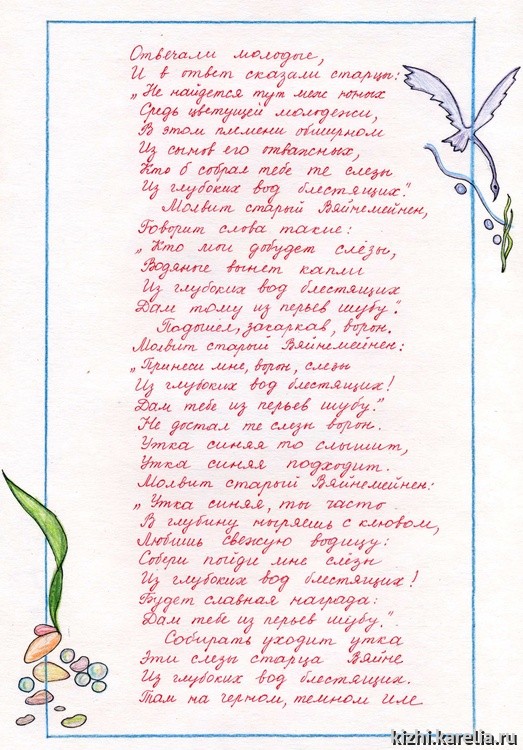 Отвечали молодые,
И в ответ сказали старцы:
„Не найдется тут меж юных
Средь цветущей молодежи,
В этом племени обширном
Из сынов его отважных,
Кто б собрал тебе те слезы
Из глубоких вод блестящих."
Молвит старый Вяйнемейнен,
Говорит слова такие:
„Кто мои добудет слёзы,
Водяные вынет капли
Из глубоких вод блестящих
Дам тому из перьев шубу".
Подошёл, закаркав, ворон.
Молвит старый Вяйнемейнен:
„Принеси мне, ворон, слезы
Из глубоких вод блестящих!
Дам тебе из перьев шубу."
Не достал те слезы ворон.
Утка синяя то слышит,
Утка синяя подходит.
Молвит старый Вяйнемейнен:
„Утка синяя, ты часто
В глубину ныряешь с клювом,
Любишь свежую водицу:
Собери пойди мне слёзы
Из глубоких вод блестящих!
Будет славная награда:
Дам тебе из перьев шубу."
Собирать уходит утка
Эти слезы старца Вяйне
Из глубоких вод блестящих.
Там на черном, темном иле
kizhi.karelia.ru